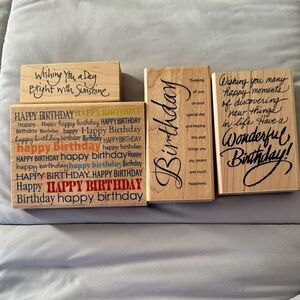 Wishing You a Day
Bright with Sunshine
HAPPY BIRTHDAY HAPPY BIRTHDAY
happy birthday
HAPPY BIRTHDAY
happy birthday
HAPPY BIRTHDAY happy birthday
HAPPY BIRTHDAY
Happy HAPPY BIRTHDAY
Birthday happy birthday
Birthday
Thinking
of you
on your
special day
and hoping
this year
brings you
joy, peace
and much
happiness.
Wishing you many
happy moments
of discovering
new things
in life. Have a
Wonderful
Birthday!